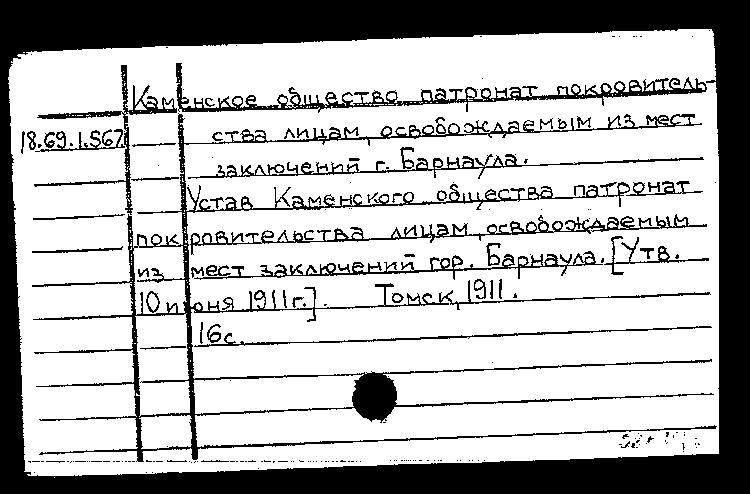 Каменское общество патронат покровитель-
18.69.1.567 ства лицам, освобождаемым из мест
заключений г. Барнаула.
Устав Каменского общества патронат
покровительства лицам, освобождаемым
из мест заключений гор. Барнаула. [Утв.
10 июня 1911 г.]. Томск, 1911.
16с.